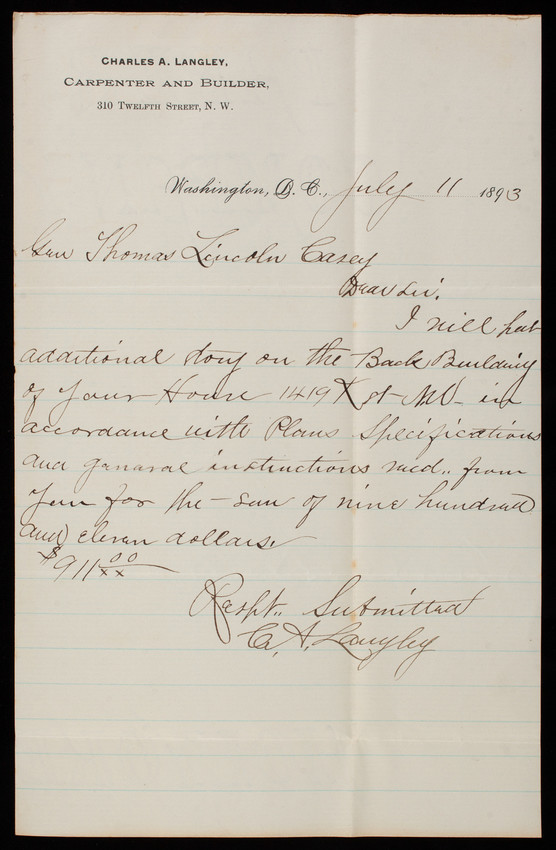 CHARLES A. LANGLEY,
CARPENTER AND BUILDER,
310 TWELFTH STREET, N. W.
Washington, D. C., July 11 1893
Gen Thomas Lincoln Casey
Dear Sir.
I will put
additional story on the Back Building
of your House 1419 K st NW in
accordance with Plans Specifications
and ganaral instructions recd.. from
you for the sum of nine hundred
and eleven dollars.
$911 00/xx
Respt.. Submitted
C. A. Langley